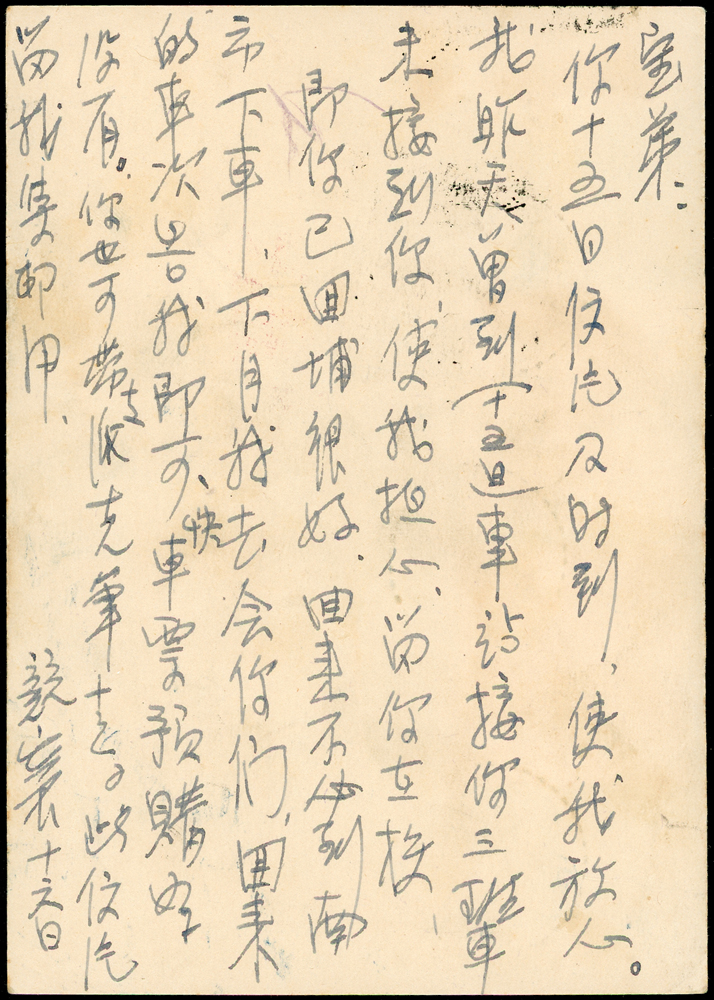 堅弟：
你十五日信片及时到，使我放心。
我昨天曾到(十五)迠車站接你三班車
未接到你，使我担心，留你在
即你已回埔很好．回来不必到南
市下車，下月我去会你們，回来
的車次告我即可、快車票預購好
沒有。你也可带支派克筆去。此信片
留我集邮用、
競業十六日